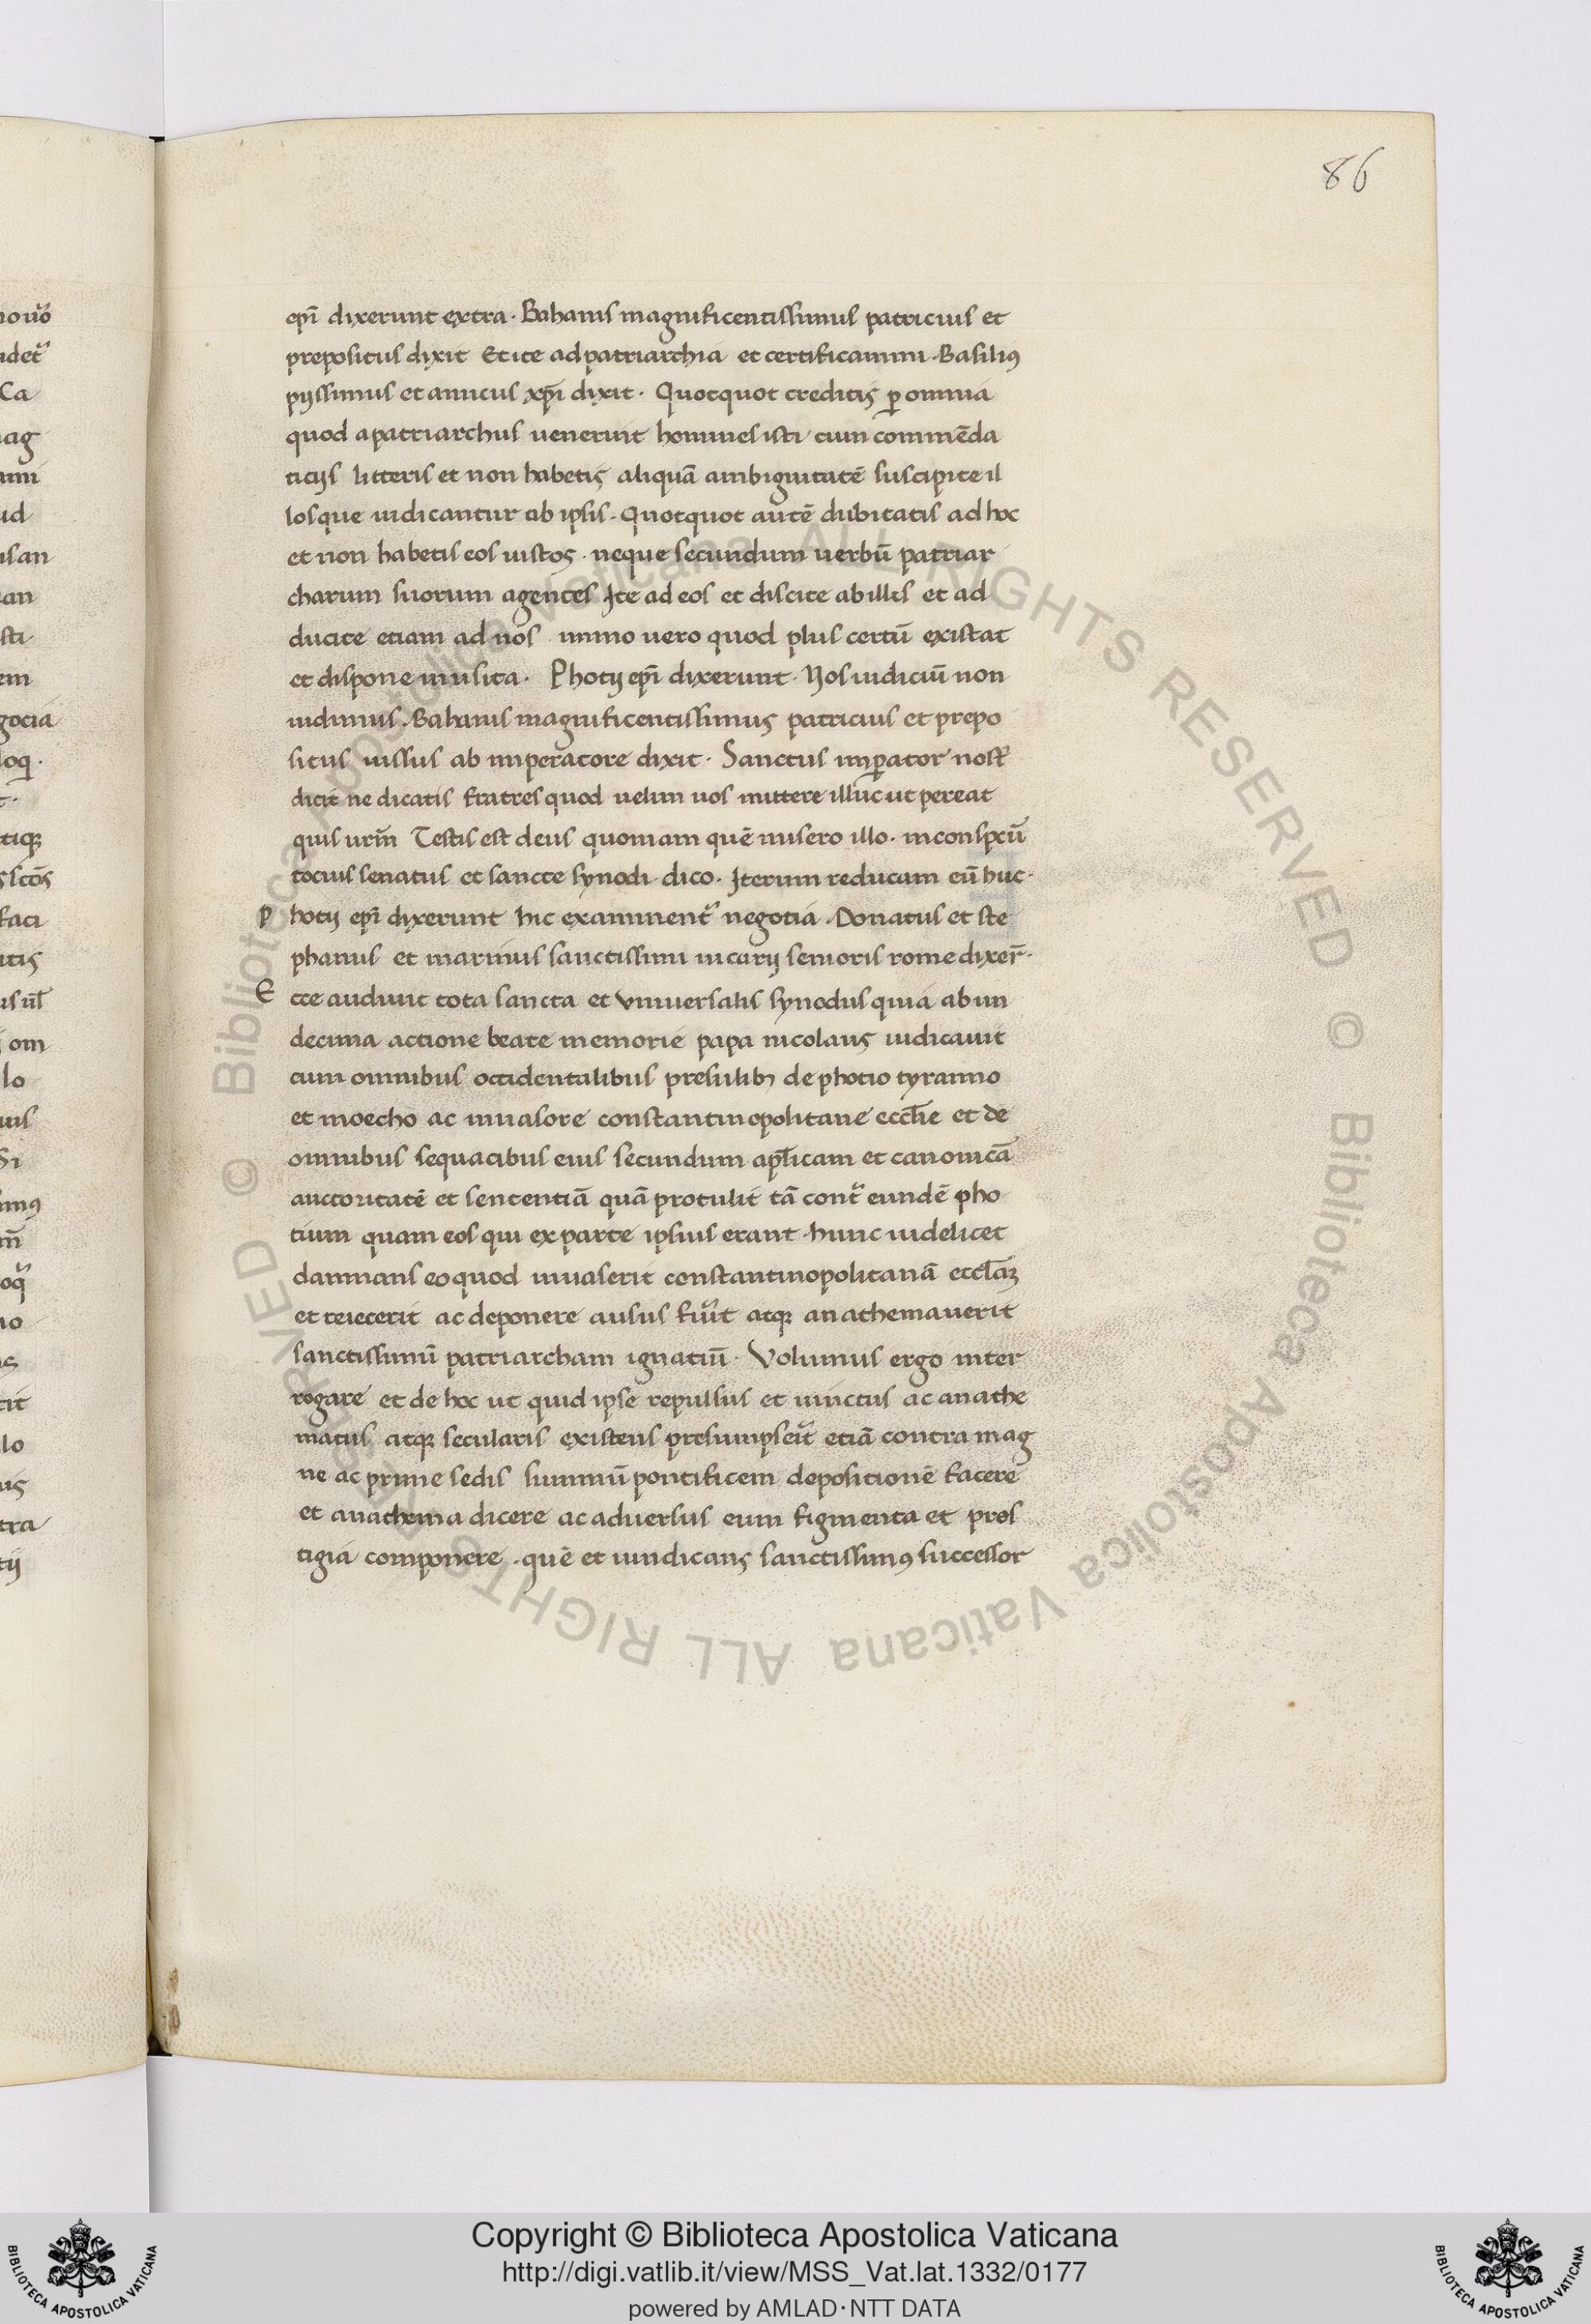 86
noūo
idet᷑
Ca
iag
imi
ud
usan
an
sti
em
gocia
loq.
tiqꝫ
s scōs
faci
itis
us ul̄
om
lo
uis
Si
imꝰ
m̄
oq᷑
no
tit
lo
us
tra
tij
ep̄i dixerunt extra. Bahanis magnificentissimus patricius et
prepositus dixit Et ite ad patriarchia et certificamini. Basiliꝰ
pijssimus et amicus xp̄i dixit. Quotquot creditis ꝑ omnia
quod apatriarchus uenerint homines isti cum commēda
ticijs litteris et non habetis aliquā ambiguitatē suscipite il
losque iudicantur ab ipsis. Quotquot autē dubitatis ad hoc
et non habetis eos iustos. neque secundum uerbū patriar
charum suorum agentes Ite ad eos et discite ab illis et ad
ducite etiam ad nos immo uero quod plus certū existat
et dispone in usita. Photij ep̄i dixerunt. Nos iudiciū non
uidimus. Bahanis magnificentissimus patricius et prepo
situs iussus ab imperatore dixit. Sanctus imꝑator nost᷑
dicit ne dicatis fratres quod uelim uos mittere illuc ut pereat
quis ur̄m Testis est deus quoniam quē misero illo. in conspcū
tocius senatus et sancte synodi dico. Iterum reducam eū huc.
Photij ep̄i dixerunt hic examinent᷑ negotia. Donatus et ste
phanus et marinus sanctissimi uicarij senioris rome dixer̄.
Ecce audiuit tota sancta et vniuersalis synodus quia ab un
decima actione beate memorie papa nicolaus iudicauit
cum omnibus occidentalibus presulibꝫ de photio tyranno
et moecho ac inuasore constantinopolitane eccl̄ie et de
omnibus sequacibus eius secundum apl̄icam et canonicā
auctoritatē et sententiā quā protulit tā cont᷑ eundē pho
tium quam eos qui ex parte ipsius erant. hunc uidelicet
damnans eo quod inuaserit constantinopolitanā eccl̄aꝫ
et reiecerit ac deponere ausus fu᷑it atqꝫ anathemauerit
sanctissimū patriarcham ignatiū. Volumus ergo inter
rogare et de hoc ut quid ipse repulsus et uinctus ac anathe
matus atqꝫ secularis existens presumpse᷑it etiā contra mag
ne ac prime sedis summū pontificem depositionē facere
et anathema dicere ac aduersus eum figmenta et pres
tigia componere. quē et iundicans sanctissimꝰ successor
© Biblioteca Apostolica Vaticana ALL RIGHTS RESERVED
© Biblioteca Apostolica Vaticana ALL RIGHTS RESERVED
Copyright © Biblioteca Apostolica Vaticana
http://digi.vatlib.it/view/MSS_Vat.lat.1332/0177
powered by AMLAD·NTT DATA
BIBLIOTECA APOSTOLICA VATICANA
BIBLIOTECA APOSTOLICA VATICANA